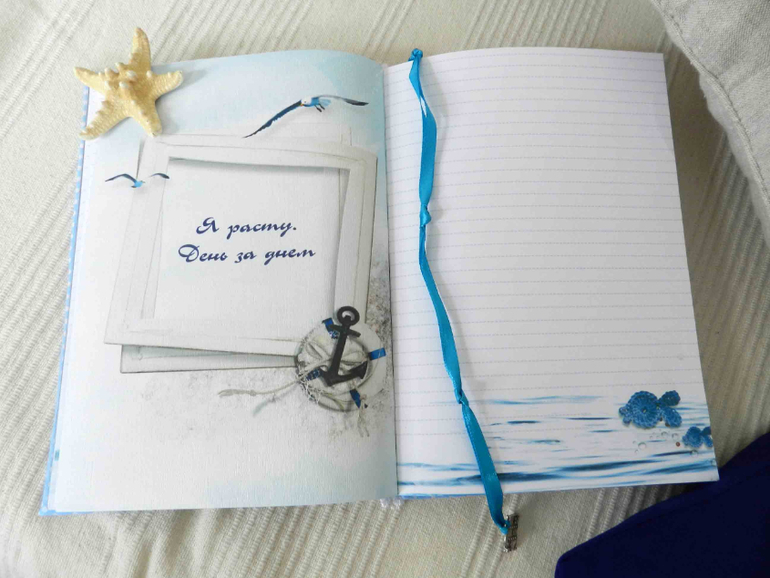 Я расту.
День за днем